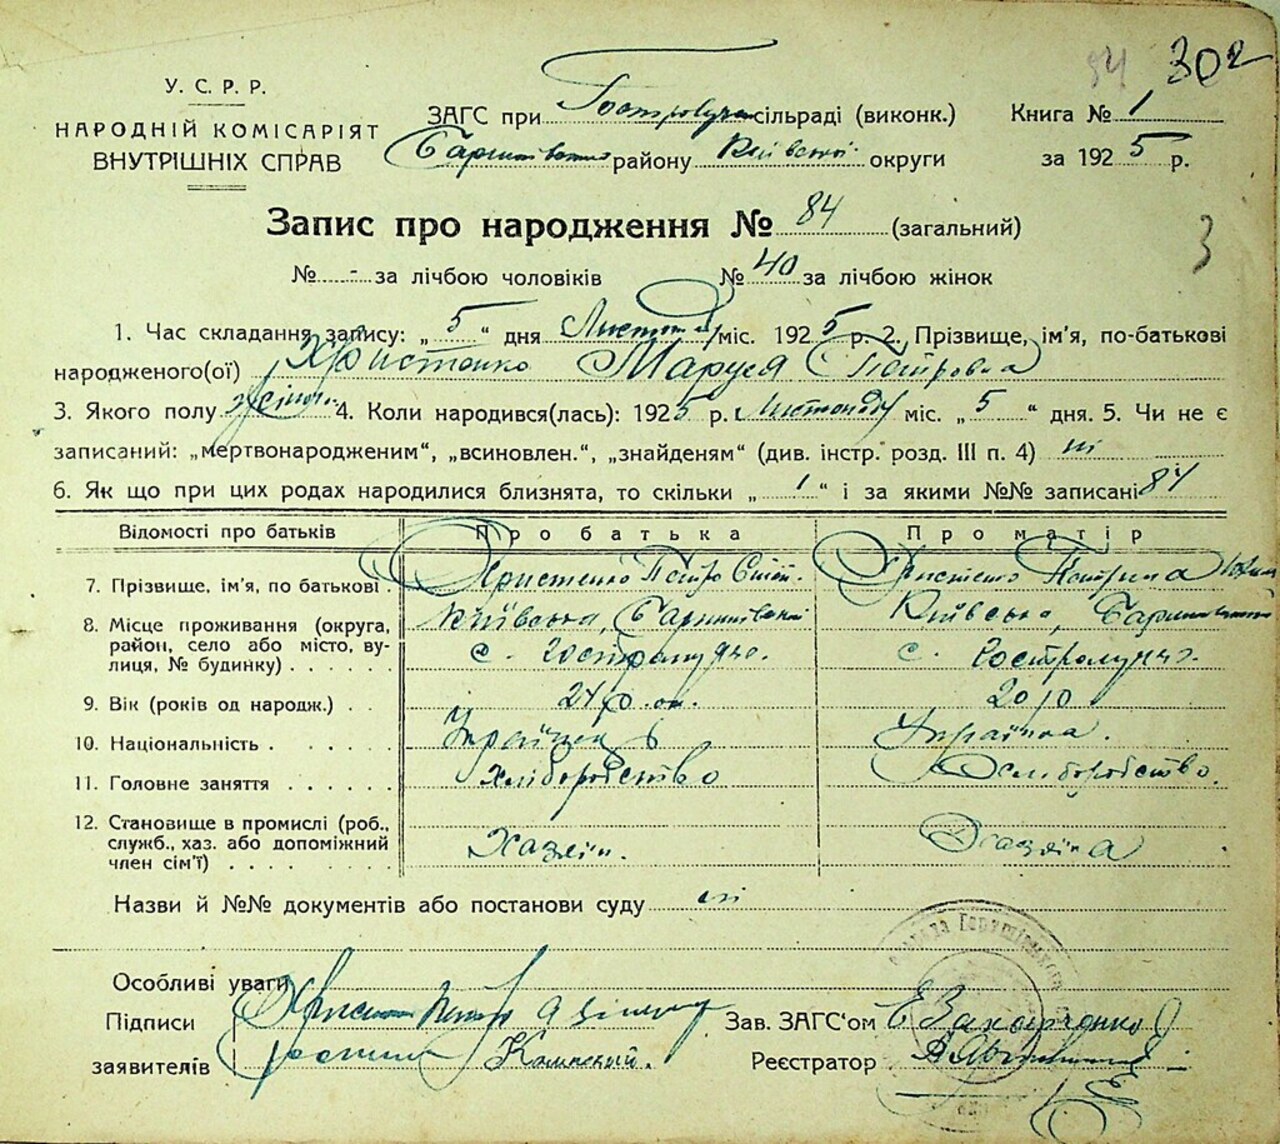 94 302
У. С. Р. Р.
НАРОДНІЙ КОМІСАРІЯТ
ВНУТРІШНІХ СПРАВ
ЗАГС при сільраді (виконк.)
району Київської округи
Книга № 1
за 1925 р.
Запис про народження № 84 (загальний)
3
№ - за лічбою чоловіків № 40 за лічбою жінок
1. Час складання запису: „5“ дня міс. 1925 р. 2. Прізвище, ім'я, по-батькові
народженого(ої) Христенко Маруся Петровна
3. Якого полу 4. Коли народився(лась): 1925 р. міс. „5“ дня. 5. Чи не є
записаний: „мертвонародженим“, „всиновлен.“, „знайденям“ (див. інстр. розд. III п. 4) ні
6. Як що при цих родах народилися близнята, то скільки „1“ і за якими №№ записані 84
Відомості про батьків Про батька Про матір
7. Прізвище, ім'я, по батькові Христенко Петро
8. Місце проживання (округа, район, село або місто, вулиця, № будинку) Київська, Київська,
с. с.
9. Вік (років од народж.) 24 20
10. Національність Українка.
11. Головне заняття Хліборобство Хліборобство.
12. Становище в промислі (роб., служб., хаз. або допоміжний член сім'ї) Хазяін. Хазяіна
Назви й №№ документів або постанови суду ні
Особливі уваги
Підписи
заявителів
Зав. ЗАГС'ом Захарченко
Реєстратор